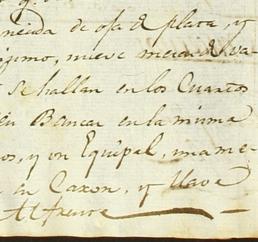 necida de oja de plata, y
simo, nueve mecas de va-
se hallan en los Cuartos
en Bancas en la misma
os, y un Equipal, una me-
con Caxon, y Llave
Al frente